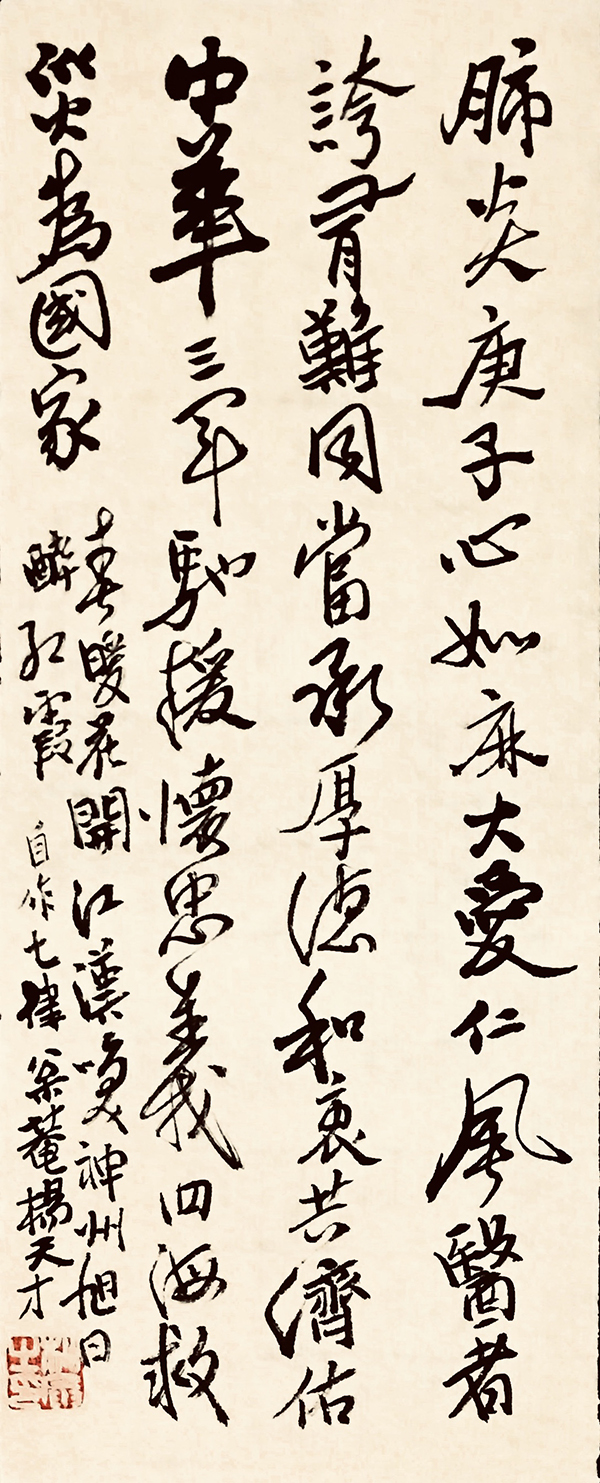 肺炎庚子心如麻大愛仁風醫者
誇有難同當承厚德和衷共濟佑
中華三軍馳援懷忠義四海救
災為國家
春暖花開江漢喚神州旭日
醉紅霞
自作七律
菴楊天才